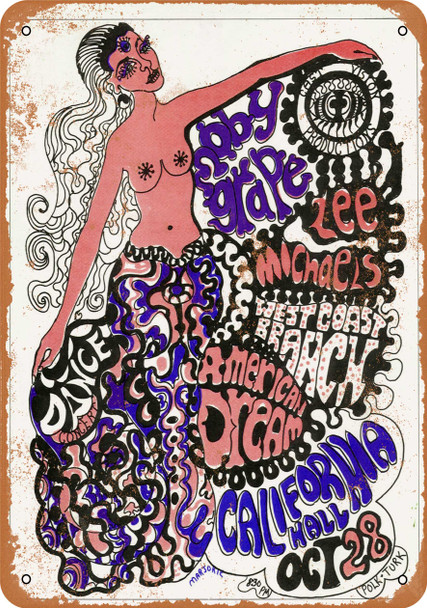 moby
grape
Lee
Michaels
WEST COAST
BRANCH
AMERICAN
DREAM
DANCE
CALIFORNIA
HALL
OCT 28
8:30 PM
POLK • TURK
VISION
PRODUCTIONS